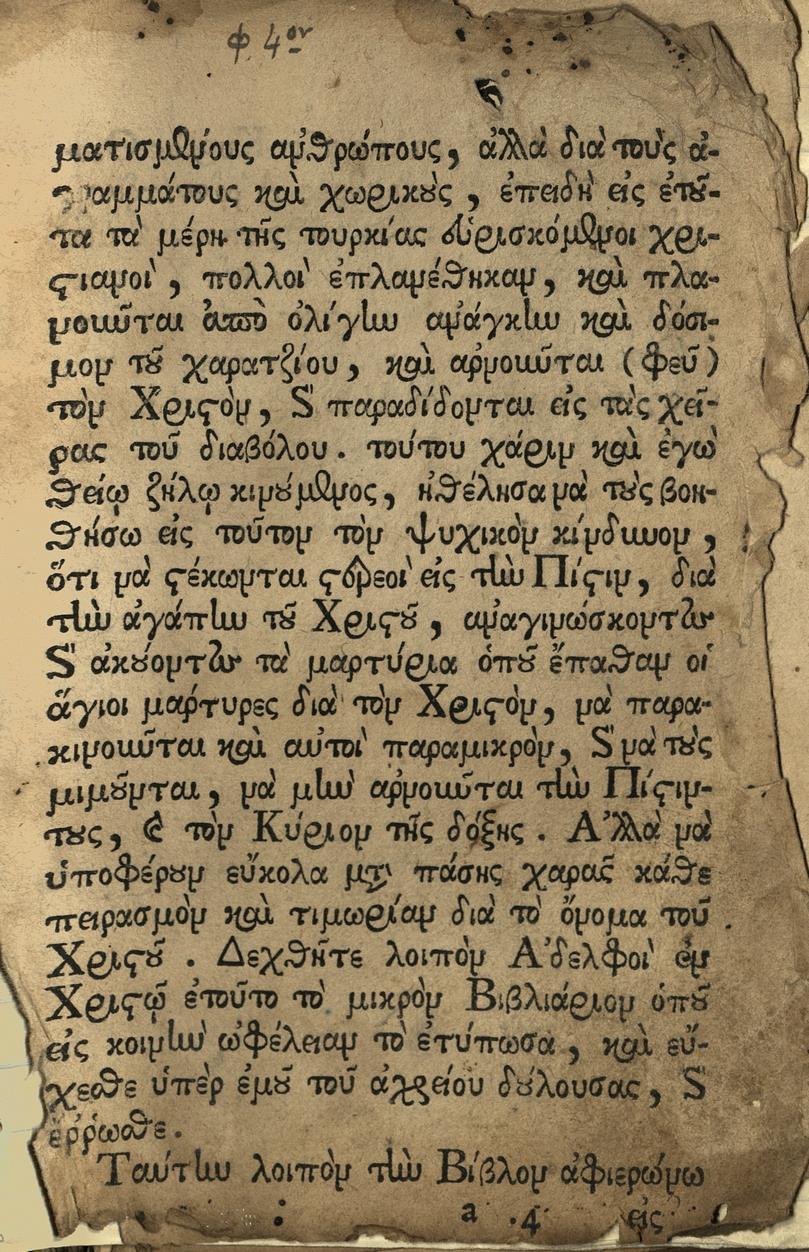 φ. 4ον
ματισμένους ανθρώπους, ἀλλὰ διὰ τοὺς ἀ-
γραμμάτους καὶ χωρικοὺς, ἐπειδὴ εἰς ἐτοῦ-
τα τὰ μέρη τῆς τουρκίας εὑρισκόμενοι χρι-
ςιανοὶ, πολλοὶ ἐπλανέθηκαν, καὶ πλα-
νοιῶται ἀπὸ ὀλίγην ανάγκην καὶ δόσι-
νον τοῦ χαρατζίου, καὶ αρνοιῶται (φεῦ)
τὸν Χριςὸν, ϛ παραδίδονται εἰς τὰς χεῖ-
ρας τοῦ διαβόλου. τούτου χάριν καὶ ἐγὼ
θείῳ ζήλῳ κινούμενος, ἠθέλησα νὰ τοὺς βοη-
θήσω εἰς τοῦτον τὸν ψυχικὸν κίνδυνον,
ὅτι νὰ ςέκωνται ςερεοὶ εἰς τὴν Πίςιν, διὰ
τὴν ἀγάπην τοῦ Χριςοῦ, αναγινώσκοντες
ϛ ἀκούοντες τὰ μαρτύρια ὁποῦ ἔπαθαν οἱ
ἅγιοι μαρτυρες διὰ τὸν Χριςὸν, νὰ παρα-
κινοιῶται καὶ αὐτοὶ παραμικρὸν, ϛ νὰ τοὺς
μιμοῦνται, νὰ μὴν αρνοιῶται τὴν Πίςιν-
τους, ϛ τὸν Κύριον τῆς δόξης. Α᾿λλὰ νὰ
ὑποφέρουν εὔκολα μετὰ πάσης χαρᾶς κάθε
πειρασμὸν καὶ τιμωρίαν διὰ τὸ ὄνομα τοῦ
Χριςοῦ. Δεχθῆτε λοιπὸν Α᾿δελφοὶ ἐν
Χριςῷ ἐτοῦτο τὸ μικρὸν Βιβλιάριον ὁποῦ
εἰς κοινὴν ὠφέλειαν τὸ ἐτύπωσα, καὶ εὔ-
χεσθε ὑπὲρ ἐμοῦ τοῦ ἀχρείου δούλουσας, ϛ
ἔρρωσθε.
Ταύτην λοιπὸν τὴν Βίβλον ἀφιερώνω
a 4 εἰς